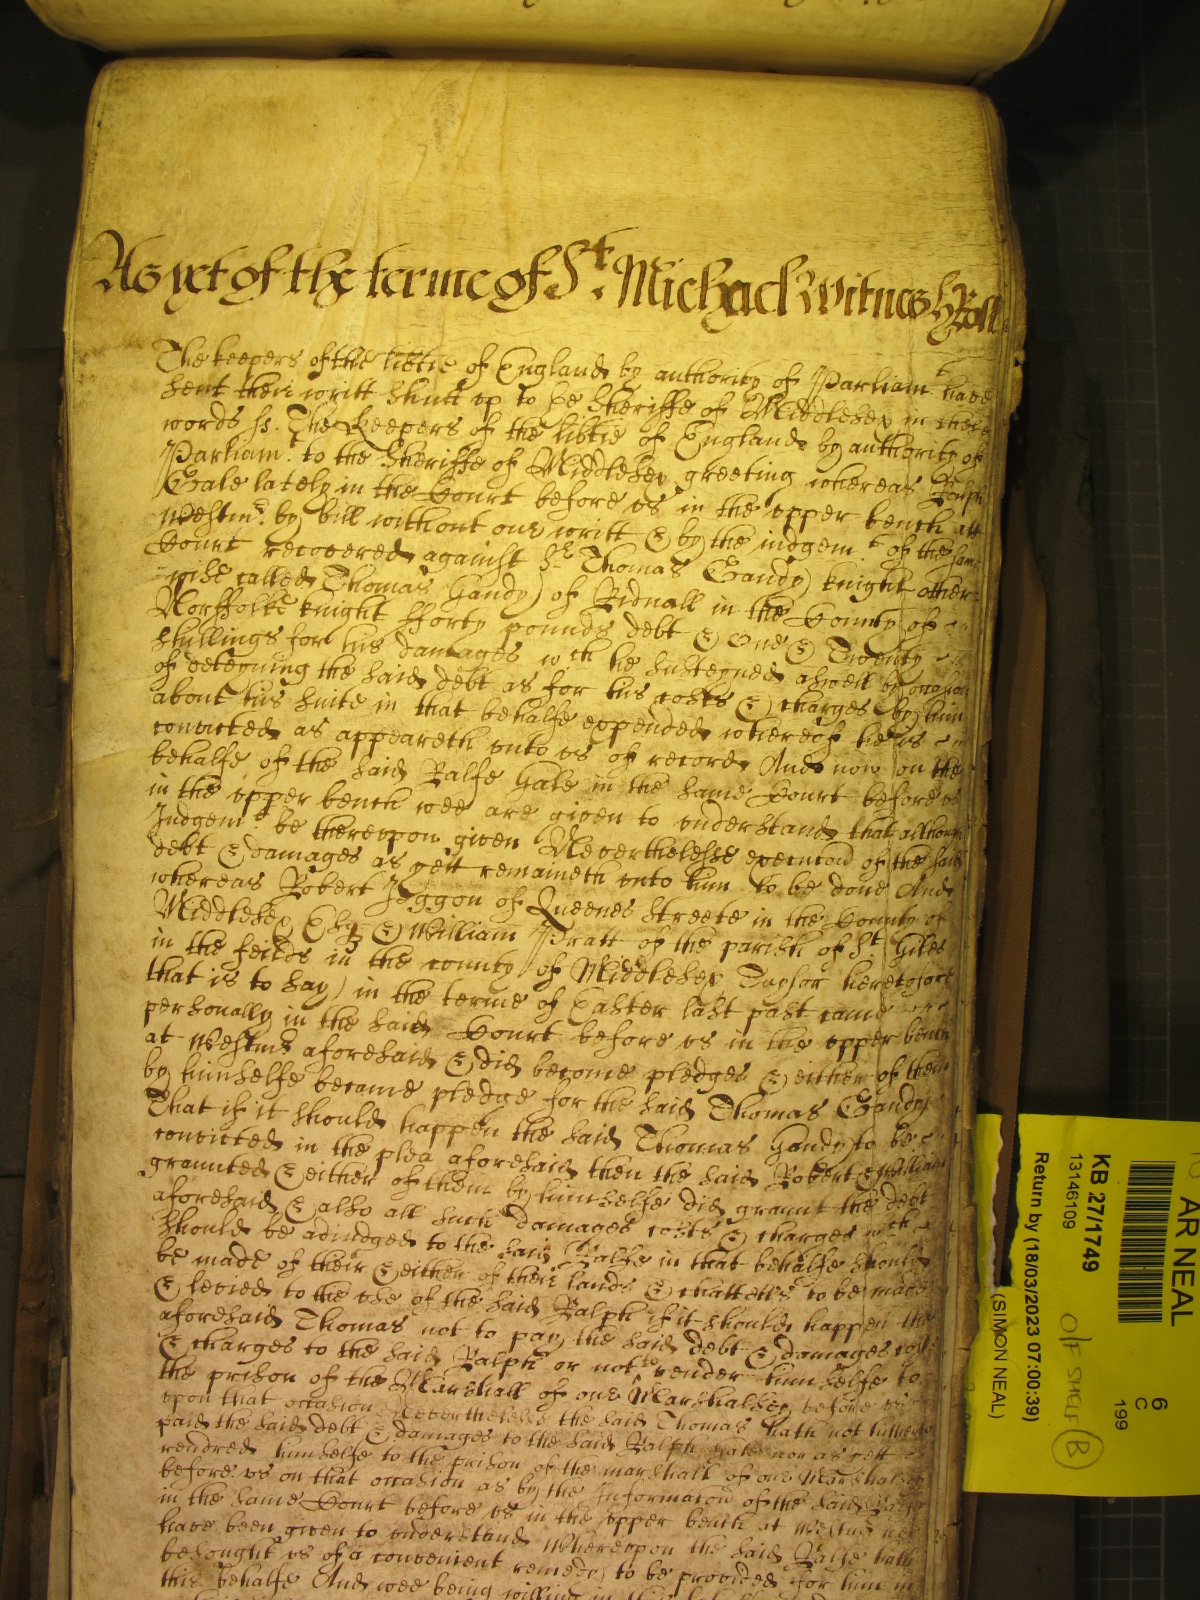 As yet of the terme of St. Michael Witnes H Roll
The keepers of the libtie of England by authority of Parliamt. have
sent their writt shutt vp to ye Sheriffe of Middlesex in these
words ss. The Keepers of the libtie of England by authority of
Parliamt. to the Sheriffe of Middlesex greeting whereas Ralph
Gale lately in the Court before vs in the vpper bench att
Westmr. by bill without our writt & by the iudgemt. of the same
Court recovered against Sr. Thomas Gandy knight other-
wise called Thomas Gandy of Bidnall in the County of
Norffolke knight fforty pounds debt & One & Twenty
shillings for his damages wch he susteyned aswell by occasion
of deteyning the said debt as for his costs & charges by him
about his suite in that behalfe expended whereof hee is
convicted as appeareth vnto vs of record And now on the
behalfe of the said Ralfe Gale in the same Court before vs
in the vpper bench wee are given to vnderstand that although
Judgemt. be therevpon given Neverthelesse execucon of the said
debt & damages as yett remaineth vnto him to be done And
whereas Robert Jeggon of Queenes Streete in the County of
Middlesex Esq & William Pratt of the parish of St. Giles
in the feilds in the county of Middlesex Taylor heretofore
that is to say in the terme of Easter last past came
personally in the said Court before vs in the vpper bench
at Westmr. aforesaid & did become pledges & either of them
by himselfe became pledge for the said Thomas Gandy
That if it should happen the said Thomas Gandy to be
convicted in the plea aforesaid then the said Robert & William
graunted & either of them by himselfe did graunt the debt
aforesaid & also all such damages costs & charges wch
should be adiudged to the said Ralfe in that behalfe should
be made of their & either of their lands & chattells to be made
& levied to the vse of the said Ralph if it should happen the
aforesaid Thomas not to pay the said debt & damages costs
& charges to the said Ralph or not to render himselfe to
the prison of the Marshall of our Marshalsey before vs
vpon that occasion Neverthelesse the said Thomas hath not hitherto
paid the said debt & damages to the said Ralph Gale nor as yett
rendred himselfe to the prison of the marshall of our Marshalsey
before vs on that occasion as by the Informacon of the said Ralfe
in the same Court before vs in the vpper bench at Westmr wee
have been given to vnderstand Wherevpon the said Ralfe hath
besought vs of a convenient remedy to be provided for him in
this behalfe And wee being willing in
AR NEAL
6
C
199
KB 27/1749
13146109
O/F SHELF B
Return by (18/03/2023 07:00:39)
(SIMON NEAL)